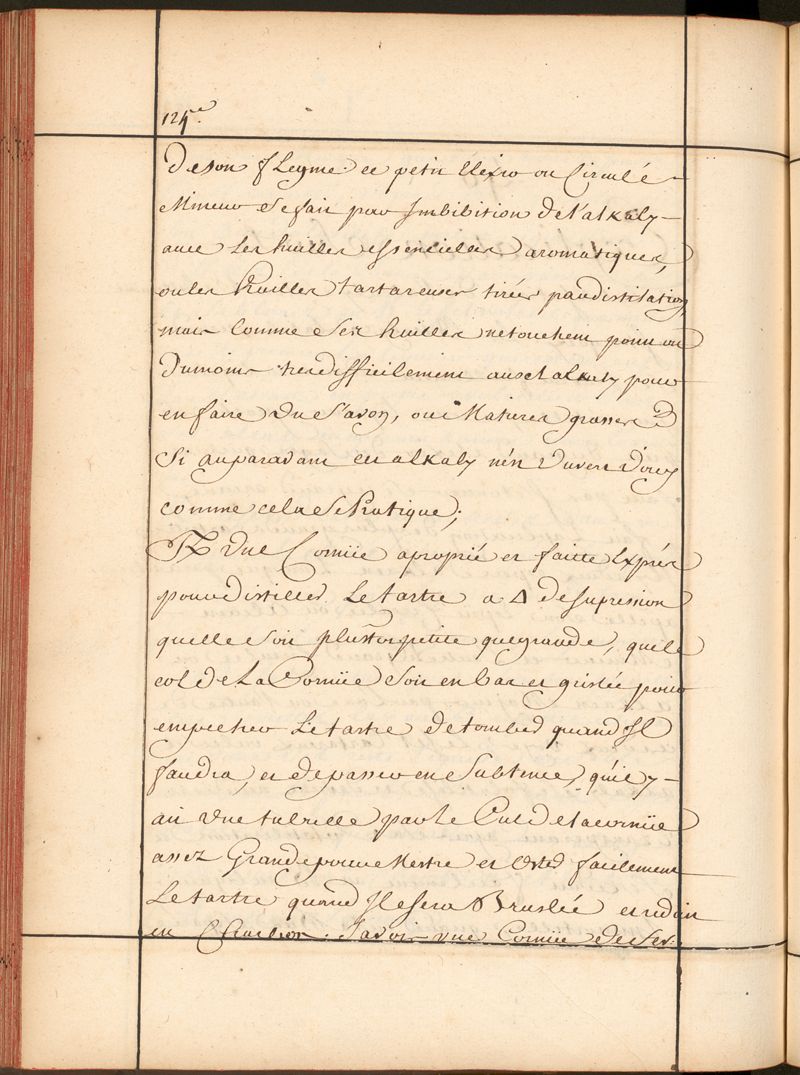 124e.
De son fLegme. ce petit Elixir ou Circulé
Mineur se fait par Jmbibition de l'alkaly
avec Les huilles essencielles aromatiques,
ou les huilles tartareuses tirées par distilation,
mais comme ses huilles ne touchent point ou
Du moins tres difficilement au sel alkaly pour
en faire un savon, ou Matieres grasses
Si auparavant cet alkaly n'én ouvert
comme cela se Pratique;
une Cornüe apropriée et faitte Exprés
pour distiller Le tartre a Δ de supression
quelle soit plustost petite que grande, que le
col de La Cornüe soit en bas et grislée pour
empecher Le tartre de tomber quand Jl
faudra, et de passer en substence, qu'il y
ait une tubulle par le Cul de la cornüe
assez Grande pour Mettre et oster facilement
Le tartre quand Jl sera Bruslée et reduit
en Charbon. J'avois une Cornüe de fer